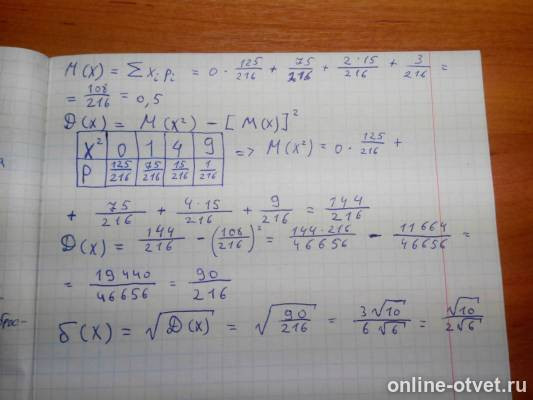 M(X) = Σ xᵢ pᵢ = 0 · 125/216 + 75/216 + 2·15/216 + 3/216 =
= 108/216 = 0,5
D(X) = M(X²) − [M(X)]²
X² 0 1 4 9 => M(X²) = 0 · 125/216 +
P 125/216 75/216 15/216 1/216
+ 75/216 + 4·15/216 + 9/216 = 144/216
D(X) = 144/216 − (108/216)² = 144·216/46656 − 11664/46656 =
= 19440/46656 = 90/216
б(X) = √D(X) = √90/216 = 3√10/6√6 = √10/2√6
online-otvet.ru